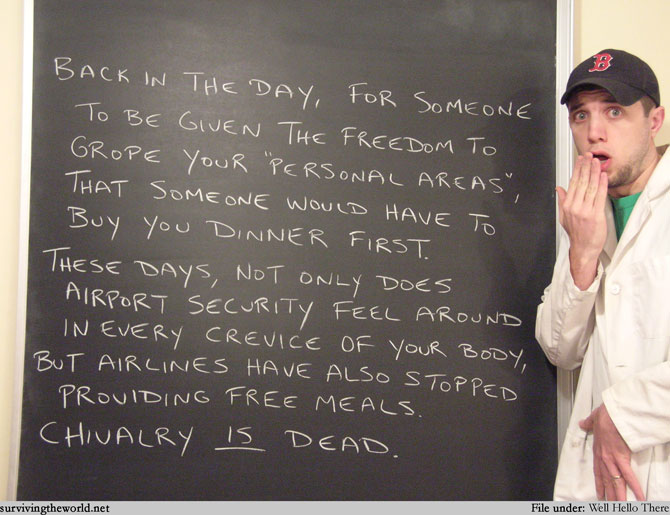 BACK IN THE DAY, FOR SOMEONE
TO BE GIVEN THE FREEDOM TO
GROPE YOUR "PERSONAL AREAS",
THAT SOMEONE WOULD HAVE TO
BUY YOU DINNER FIRST.
THESE DAYS, NOT ONLY DOES
AIRPORT SECURITY FEEL AROUND
IN EVERY CREVICE OF YOUR BODY,
BUT AIRLINES HAVE ALSO STOPPED
PROVIDING FREE MEALS.
CHIVALRY IS DEAD.
B
survivingtheworld.net
File under: Well Hello There